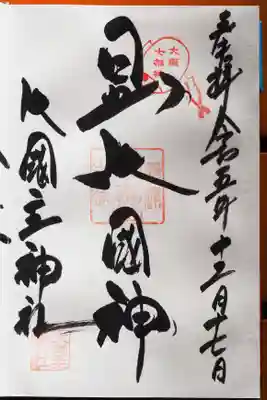 奉拝 令和五年十二月十七日
大阪
七福神
日出大國神
大國主神社